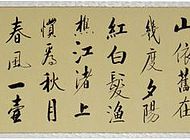 山依舊在
幾度夕陽
紅白髮漁
樵江渚上
慣看秋月
春風一壺